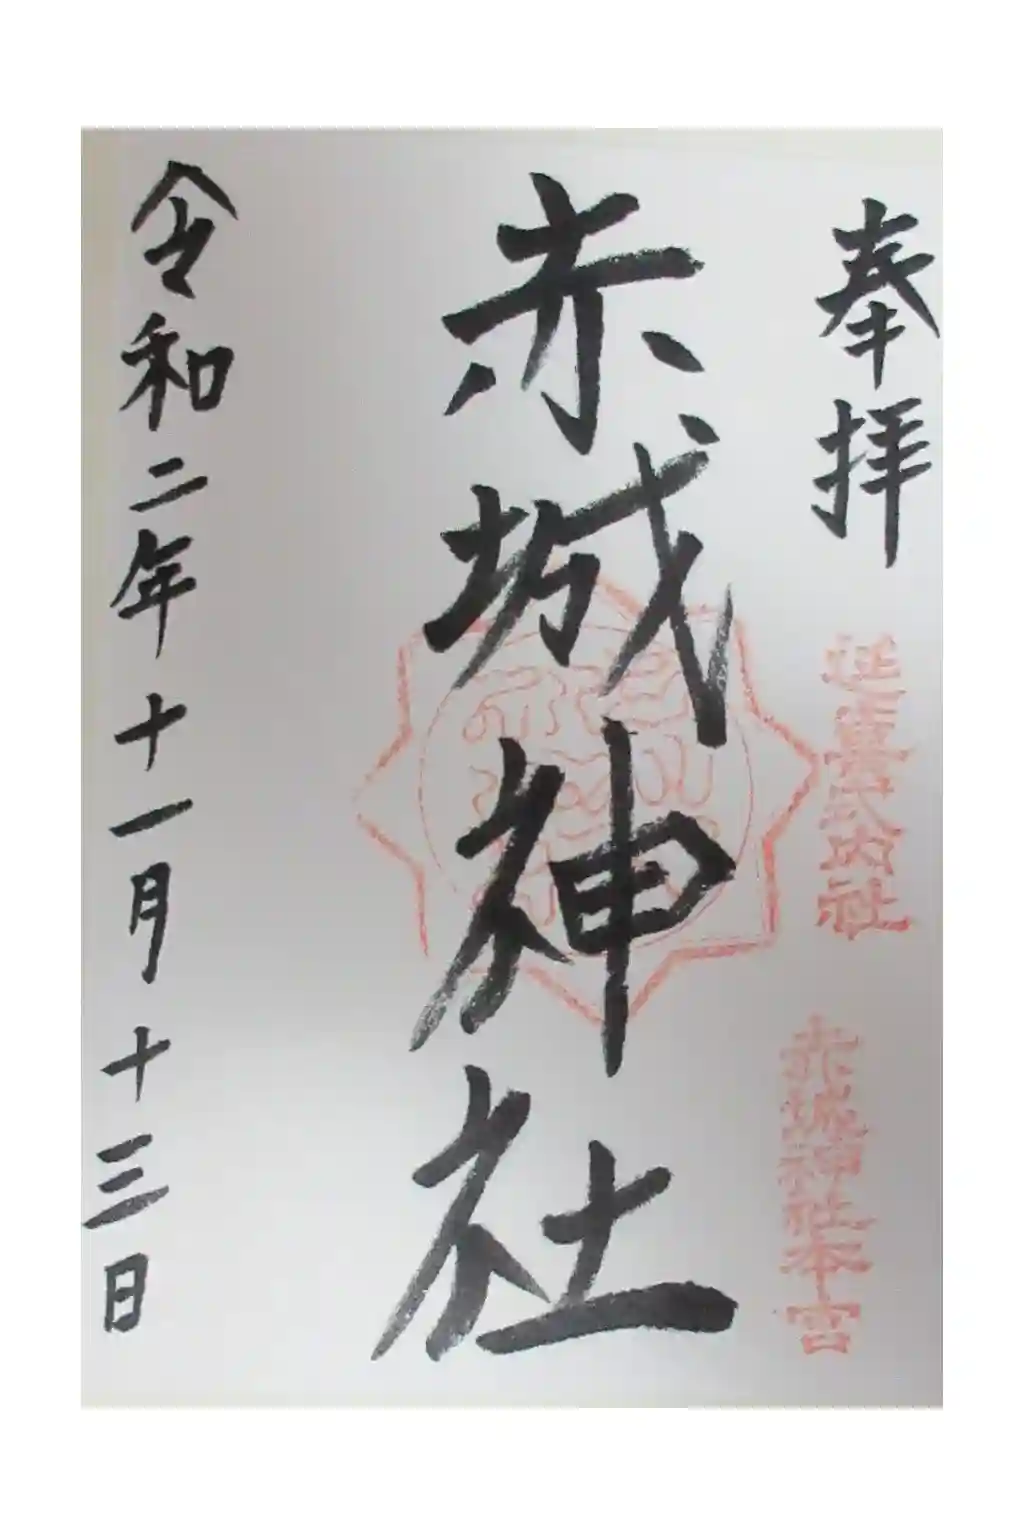 奉拝
延喜式内社
赤城神社本宮
赤城神社
令和二年十一月十三日